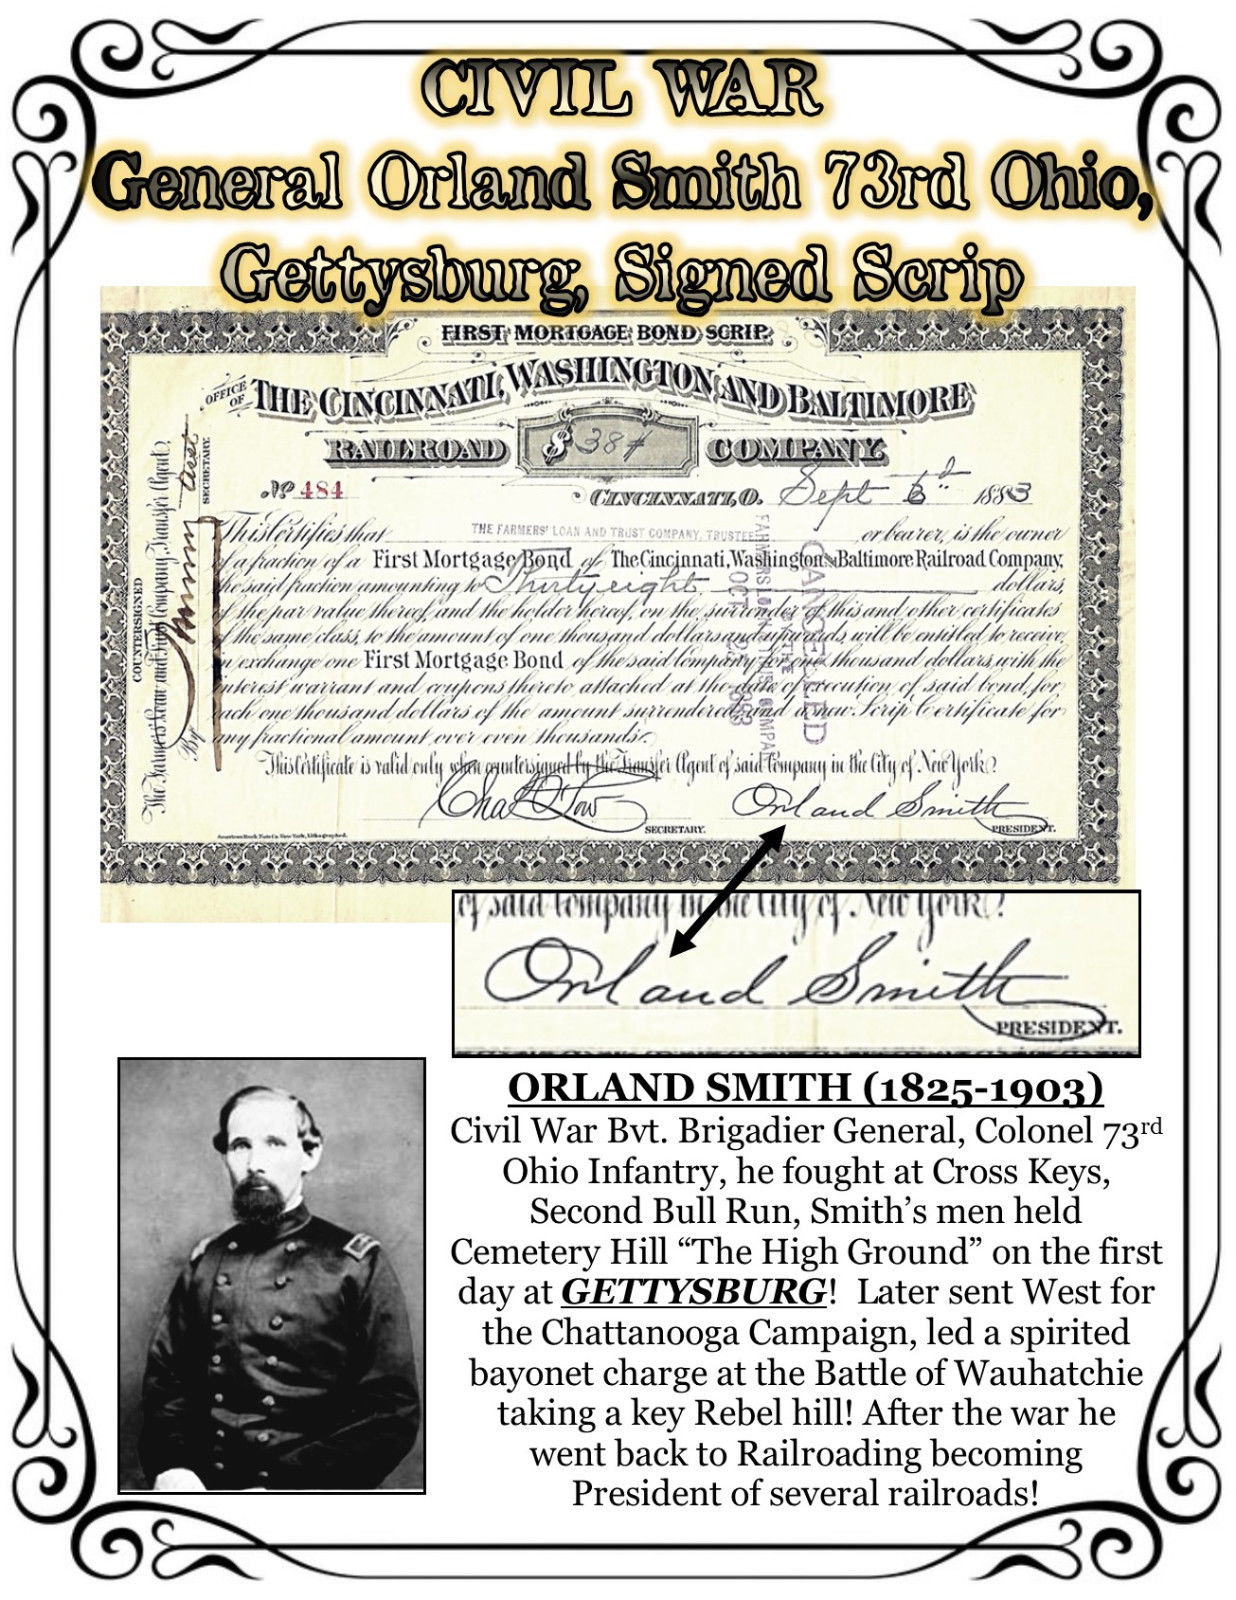 CIVIL WAR
General Orland Smith 73rd Ohio,
Gettysburg, Signed Scrip
FIRST MORTGAGE BOND SCRIP.
OFFICE OF THE CINCINNATI, WASHINGTON AND BALTIMORE
RAILROAD $38# COMPANY.
No 484
CINCINNATI, O. Sept 3d 1883
This Certifies that THE FARMERS' LOAN AND TRUST COMPANY, TRUSTEE or bearer, is the owner
of a fraction of a First Mortgage Bond of The Cincinnati, Washington and Baltimore Railroad Company,
the said fraction amounting to Thirty eight dollars,
of the par value thereof, and the holder hereof, on the surrender of this and other certificates
of the same class, to the amount of one thousand dollars and upwards, will be entitled to receive
in exchange one First Mortgage Bond of the said Company for one thousand dollars, with the
interest warrant and coupons thereto attached at the date of execution of said bond, for
each one thousand dollars of the amount surrendered, and a new Scrip Certificate for
any fractional amount over even thousands.
This Certificate is valid only when countersigned by the Transfer Agent of said Company in the City of New York.
SECRETARY.
Orland Smith
PRESIDENT.
American Bank Note Co. New York, Lithographed.
COUNTERSIGNED
The Farmers' Loan and Trust Company, Transfer Agent,
By
SECRETARY.
CANCELLED
of said Company in the City of New York.
Orland Smith
PRESIDENT.
ORLAND SMITH (1825-1903)
Civil War Bvt. Brigadier General, Colonel 73rd
Ohio Infantry, he fought at Cross Keys,
Second Bull Run, Smith’s men held
Cemetery Hill “The High Ground” on the first
day at GETTYSBURG! Later sent West for
the Chattanooga Campaign, led a spirited
bayonet charge at the Battle of Wauhatchie
taking a key Rebel hill! After the war he
went back to Railroading becoming
President of several railroads!